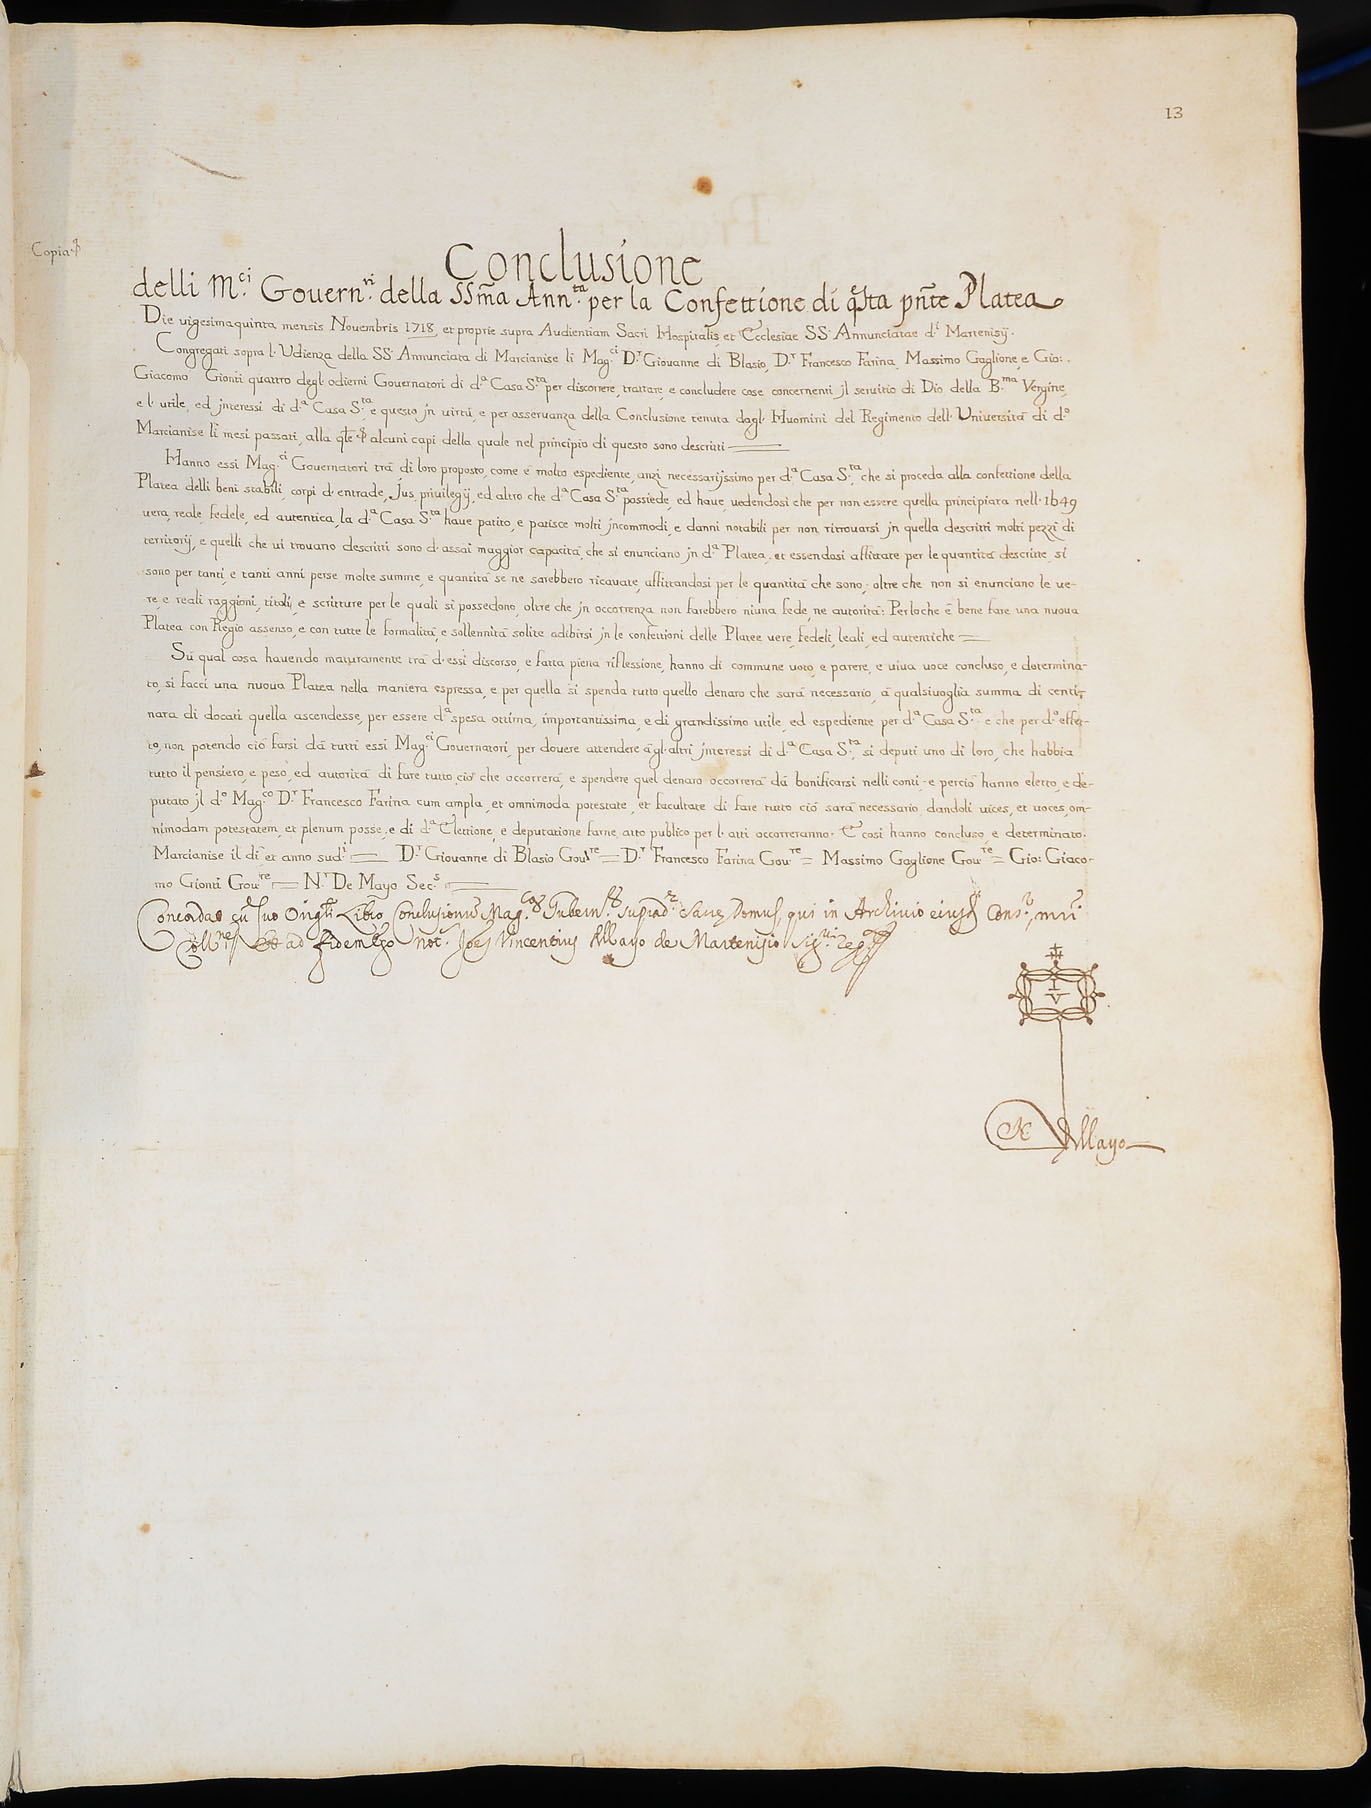 13
Copia
Conclusione
delli M.ci Govern.ri della SSma Ann.ta per la Confettione di qsta pnte Platea
Die vigesimaquinta mensis Novembris 1718, et proprie supra Audientiam Sacri Hospitalis, et Ecclesiae SS. Annunciatae d.i Martenisij.
Congregati sopra l'Udienza della SS. Annunciata di Marcianise li Mag.ci D.r Giovanne di Blasio, D.r Francesco Farina, Massimo Gaglione, e Gio:
Giacomo Gionti quattro degl'odierni Governatori di d.a Casa S.ta per discorrere, trattare, e concludere cose concernenti jl servitio di Dio della B.ma Vergine,
e l'utile, ed jnteressi di d.a Casa S.ta e questo jn virtù, e per osservanza della Conclusione tenuta dagl'Huomini del Regimento dell'Università di d.o
Marcianise li mesi passati, alla qle alcuni capi della quale nel principio di questo sono descritti
Hanno essi Mag.ci Governatori trà di loro proposto, come è molto espediente, anzi necessarijssimo per d.a Casa S.ta, che si proceda alla confettione della
Platea delli beni stabili, corpi d'entrade, Jus, privilegij, ed altro che d.a Casa S.ta possiede, ed have, vedendosi che per non essere quella principiata nell'1649
vera, reale, fedele, ed autentica, la d.a Casa S.ta have patito, e patisce molti jncommodi, e danni notabili per non ritrovarsi jn quella descritti molti pezzi di
territorij, e quelli che vi trovano descritti sono d'assai maggior capacità, che si enunciano jn d.a Platea, et essendosi affittate per le quantità descritte, si
sono per tanti, e tanti anni perse molte summe, e quantità se ne sarebbero ricavate, affittandosi per le quantità che sono; oltre che non si enunciano le ve-
re, e reali raggioni, titoli, e scritture per le quali si possedono, oltre che jn occorrenza non farebbero niuna fede, ne autorità: Perloche è bene fare una nuova
Platea con Regio assenso, e con tutte le formalità, e sollennità solite adibirsi jn le confettioni delle Platee vere, fedeli, leali, ed autentiche
Sù qual cosa havendo maturamente trà d'essi discorso, e fatta piena riflessione, hanno di commune voto, e parere, e viva voce concluso, e determina-
to, si facci una nuova Platea nella maniera espressa, e per quella si spenda tutto quello denaro che sarà necessario, à qualsivoglia summa di centi-
nara di docati quella ascendesse, per essere d.a spesa ottima, importantissima, e di grandissimo utile, ed espediente per d.a Casa S.ta e che per d.o effet-
to, non potendo ciò farsi dà tutti essi Mag.ci Governatori, per dovere attendere àgl'altri jnteressi di d.a Casa S.ta, si deputi uno di loro, che habbia
tutto il pensiero, e peso, ed autorità di fare tutto ciò che occorrerà, e spendere quel denaro occorrerà dà bonificarsi nelli conti, e perciò hanno eletto, e de-
putato jl d.o Mag.co D.r Francesco Farina cum ampla, et omnimoda potestate, et facultate di fare tutto ciò sarà necessario, dandoli vices, et voces, om-
nimodam potestatem, et plenum posse, e di d.a Elettione, e deputatione farne atto publico per l'atti occorreranno. E così hanno concluso, e determinato.
Marcianise il dì et anno sud.i = D.r Giovanne di Blasio Gov.re = D.r Francesco Farina Gov.re = Massimo Gaglione Gov.re = Gio: Giaco-
mo Gionti Gov.re = N.r De Mayo Sec.s
Concordat cu suo Libro Conclusionu Mag. Gubern. suprad. Sacre Domus, qui in Archivio
et ad fidem Ego Not. Vincentius Mayo de Martenisio
I
V
Mayo